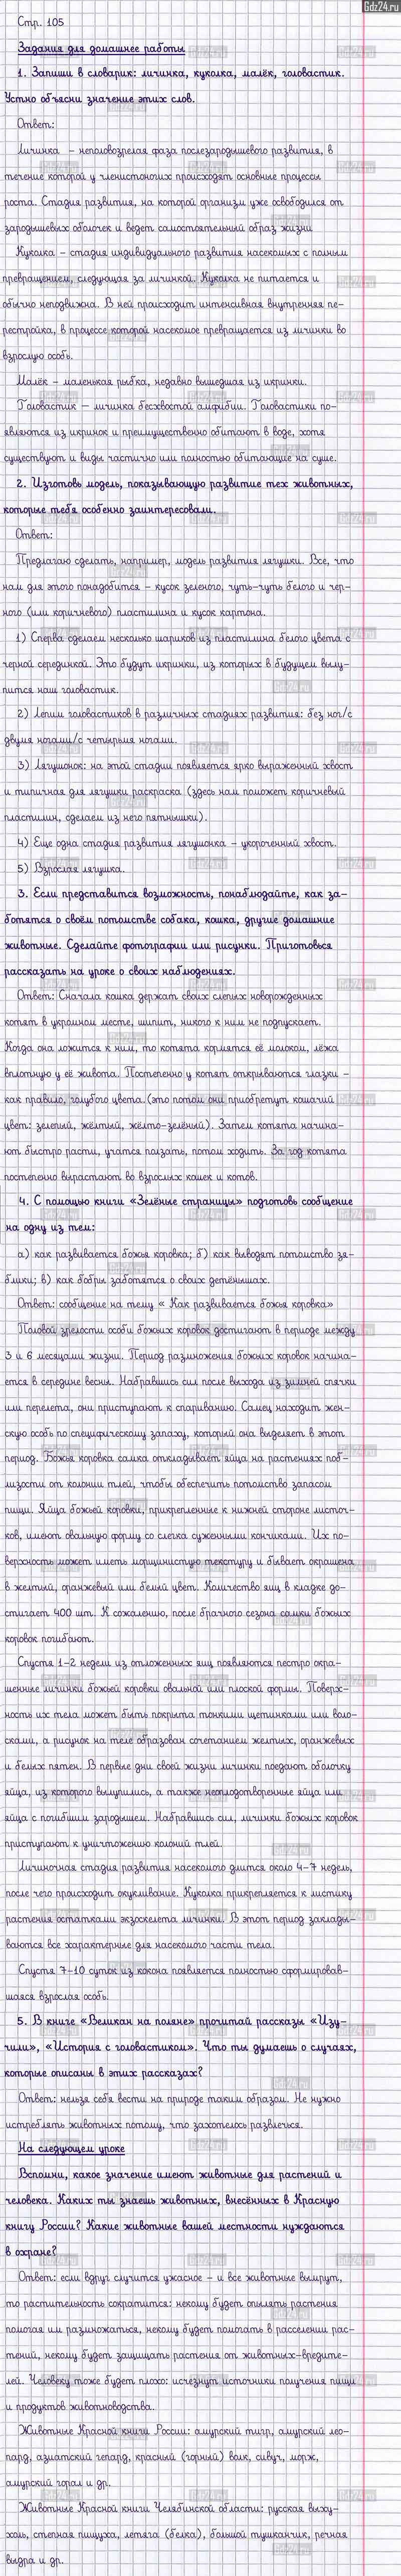 Gdz24.ru
Стр. 105
Задания для домашнее работы
1. Запиши в словарик: личинка, куколка, малёк, головастик.
Устно объясни значение этих слов.
Ответ:
Личинка – неполовозрелая фаза послезародышевого развития, в
течение которой у членистоногих происходят основные процессы
роста. Стадия развития, на которой организм уже освободился от
зародышевых оболочек и ведет самостоятельный образ жизни
Куколка – стадия индивидуального развития насекомых с полным
превращением, следующая за личинкой. Куколка не питается и
обычно неподвижна. В ней происходит интенсивная внутренняя пе-
рестройка, в процессе которой насекомое превращается из личинки во
взрослую особь.
Малёк – маленькая рыбка, недавно вышедшая из икринки.
Головастик – личинка бесхвостой амфибии. Головастики по-
являются из икринок и преимущественно обитают в воде, хотя
существуют и виды частично или полностью обитающие на суше.
2. Изготовь модель, показывающую развитие тех животных,
которые тебя особенно заинтересовали.
Ответ:
Предлагаю сделать, например, модель развития лягушки. Все, что
нам для этого понадобится – кусок зеленого, чуть-чуть белого и чер-
ного (или коричневого) пластилина и кусок картона.
1) Сперва сделаем несколько шариков из пластилина белого цвета с
черной серединкой. Это будут икринки, из которых в будущем вылу-
пится наш головастик.
2) Лепим головастиков в различных стадиях развития: без ног/с
двумя ногами/с четырьмя ногами.
3) Лягушонок: на этой стадии появляется ярко выраженный хвост
и типичная для лягушки раскраска (здесь нам поможет коричневый
пластилин, сделаем из него пятнышки).
4) Еще одна стадия развития лягушонка – укороченный хвост.
5) Взрослая лягушка.
3. Если представится возможность, понаблюдайте, как за-
ботятся о своём потомстве собака, кошка, другие домашние
животные. Сделайте фотографии или рисунки. Приготовься
рассказать на уроке о своих наблюдениях.
Ответ: Сначала кошка держат своих слепых новорожденных
котят в укромном месте, шипит, никого к ним не подпускает.
Когда она ложится к ним, то котята кормятся её молоком, лёжа
вплотную у её живота. Постепенно у котят открываются глазки –
как правило, голубого цвета (это потом они приобретут кошачий
цвет: зеленый, жёлтый, жёлто-зелёный). Затем котята начина-
ют быстро расти, учатся ползать, потом ходить. За год котята
постепенно вырастают во взрослых кошек и котов.
4. С помощью книги «Зелёные страницы» подготовь сообщение
на одну из тем:
а) как развивается божья коровка; б) как выводят потомство зя-
блики; в) как бобры заботятся о своих детёнышах.
Ответ: сообщение на тему « Как развивается божья коровка»
Половой зрелости особи божьих коровок достигают в периоде между
3 и 6 месяцами жизни. Период размножения божьих коровок начина-
ется в середине весны. Набравшись сил после выхода из зимней спячки
или перелета, они приступают к спариванию. Самец находит жен-
скую особь по специфическому запаху, который она выделяет в этот
период. Божья коровка самка откладывает яйца на растениях поб-
лизости от колонии тлей, чтобы обеспечить потомство запасом
пищи. Яйца божьей коровки, прикрепленные к нижней стороне листоч-
ков, имеют овальную форму со слегка суженными кончиками. Их по-
верхность может иметь морщинистую текстуру и бывает окрашена
в желтый, оранжевый или белый цвет. Количество яиц в кладке до-
стигает 400 шт. К сожалению, после брачного сезона самки божьих
коровок погибают.
Спустя 1-2 недели из отложенных яиц появляются пестро окра-
шенные личинки божьей коровки овальной или плоской формы. Поверх-
ность их тела может быть покрыта тонкими щетинками или воло-
сками, а рисунок на теле образован сочетанием желтых, оранжевых
и белых пятен. В первые дни своей жизни личинки поедают оболочку
яйца, из которого вылупились, а также неоплодотворенные яйца или
яйца с погибшим зародышем. Набравшись сил, личинки божьих коровок
приступают к уничтожению колоний тлей.
Личиночная стадия развития насекомого длится около 4-7 недель,
после чего происходит окукливание. Куколка прикрепляется к листику
растения остатками экзоскелета личинки. В этот период заклады-
ваются все характерные для насекомого части тела.
Спустя 7-10 суток из кокона появляется полностью сформировав-
шаяся взрослая особь.
5. В книге «Великан на поляне» прочитай рассказы «Изу-
чили», «История с головастиком». Что ты думаешь о случаях,
которые описаны в этих рассказах?
Ответ: нельзя себя вести на природе таким образом. Не нужно
истреблять животных потому, что захотелось развлечься.
На следующем уроке
Вспомни, какое значение имеют животные для растений и
человека. Каких ты знаешь животных, внесённых в Красную
книгу России? Какие животные вашей местности нуждаются
в охране?
Ответ: если вдруг случится ужасное – и все животные вымрут,
то растительность сократится: некому будет опылять растения
помогая им размножаться, некому будет помогать в расселении рас-
тений, некому будет защищать растения от животных-вредите-
лей. Человеку тоже будет плохо: исчезнут источники получения пищи
и продуктов животноводства.
Животные Красной книги России: амурский тигр, амурский лео-
пард, азиатский гепард, красный (горный) волк, сивуч, морж,
амурский горал и др.
Животные Красной книги Челябинской области: русская выху-
холь, степная пищуха, летяга (белка), большой тушканчик, речная
выдра и др.